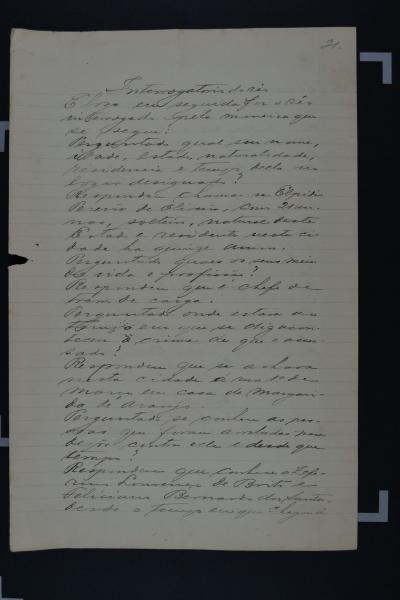 21.
Interrogatorio do réo
E logo em seguida foi o réo
interrogado pela maneira que
se segue:
Perguntado qual seu nome,
idade, estado, naturalidade,
residencia e tempo della no
lugar designado?
Respondeu chamar-se Elpidio
Pereira de Oliveira, com 21 an-
nos, solteiro, natural deste
Estado e residente nesta ci-
dade ha quinze annos.
Perguntado quaes os seus meios
de vida e profissão?
Respondeu que é chefe de
trem de carga.
Perguntado onde estava ao
tempo em que se diz acon-
teceu o crime de que é accu-
sado?
Respondeu que se achava
nesta cidade
em casa de
de Araujo.
Perguntado se conhece as pes-
soas que foram
contra elle e desde que
tempo?
Respondeu que conhece a
Lourenço de Brito e
Feliciano Bernardo dos Santos
desde o tempo em que chegou a